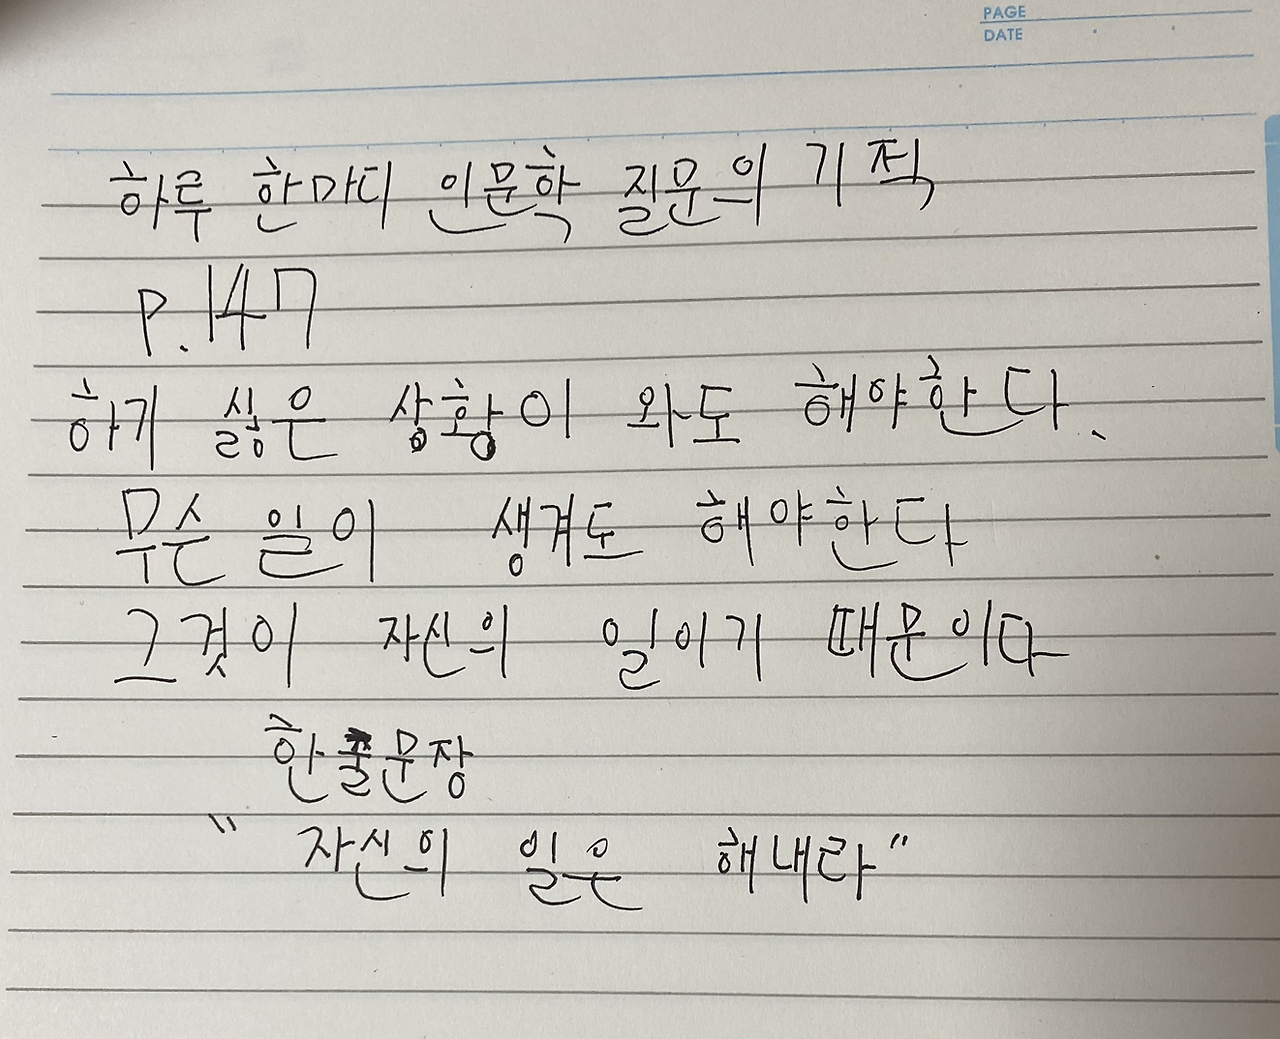 PAGE
DATE
하루 한마디 인문학 질문의 기적
P.147
하기 싫은 상황이 와도 해야한다.
무슨 일이 생겨도 해야한다
그것이 자신의 일이기 때문이다
한줄문장
"자신의 일은 해내라"